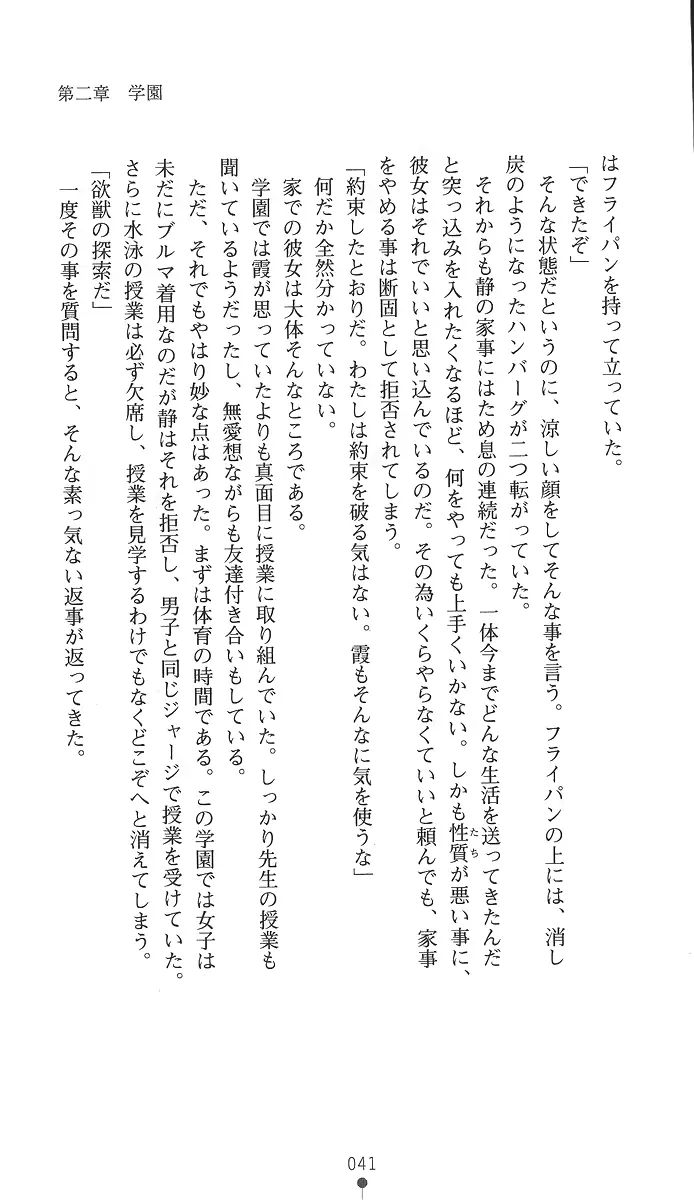 第二章　学園
はフライパンを持って立っていた。
「できたぞ」
そんな状態だというのに、涼しい顔をしてそんな事を言う。フライパンの上には、消し
炭のようになったハンバーグが二つ転がっていた。
それからも静の家事にはため息の連続だった。一体今までどんな生活を送ってきたんだ
と突っ込みを入れたくなるほど、何をやっても上手くいかない。しかも性質が悪い事に、
たち
彼女はそれでいいと思い込んでいるのだ。その為いくらやらなくていいと頼んでも、家事
をやめる事は断固として拒否されてしまう。
「約束したとおりだ。わたしは約束を破る気はない。霞もそんなに気を使うな」
何だか全然分かっていない。
家での彼女は大体そんなところである。
学園では霞が思っていたよりも真面目に授業に取り組んでいた。しっかり先生の授業も
聞いているようだったし、無愛想ながらも友達付き合いもしている。
ただ、それでもやはり妙な点はあった。まずは体育の時間である。この学園では女子は
未だにブルマ着用なのだが静はそれを拒否し、男子と同じジャージで授業を受けていた。
さらに水泳の授業は必ず欠席し、授業を見学するわけでもなくどこぞへと消えてしまう。
「欲獣の探索だ」
一度その事を質問すると、そんな素っ気ない返事が返ってきた。
041